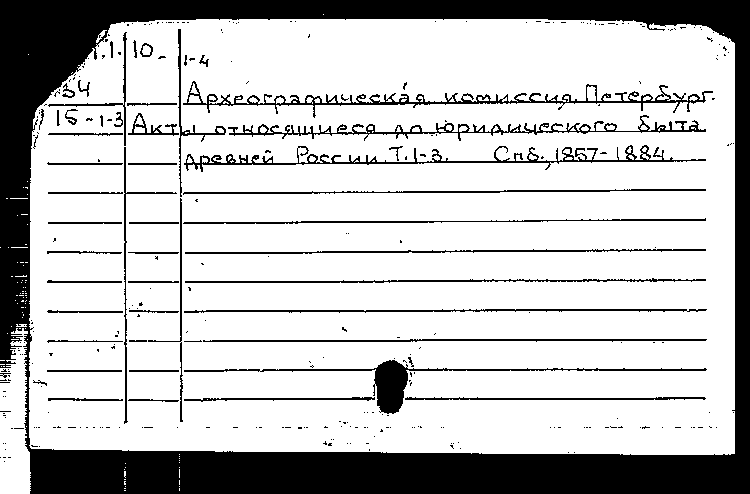 1.1. 10- 1-4
34 Археографическая комиссия. Петербург.
15-1-3 Акты, относящиеся до юридического быта
древней России. Т.1-3. Спб., 1857-1884.